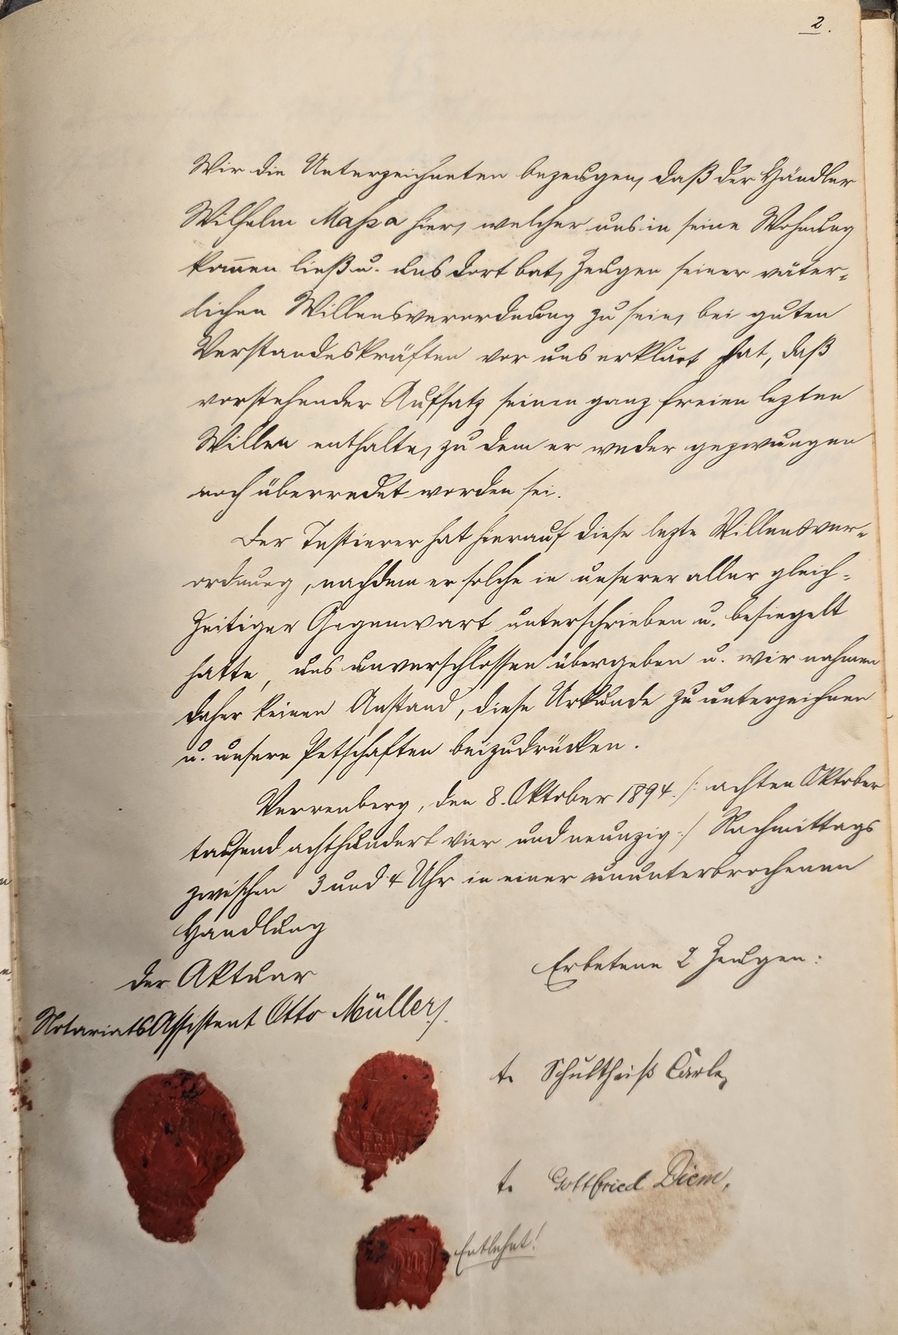 2.
Wir die Unterzeichneten bezeugen, daß der Händler
Wilhelm Massa hier, welcher uns in seine Wohnung
kom̅en ließ u. uns dort bat, Zeugen seiner väter-
lichen Willensverordnung zu sein, bei guten
Verstandeskräften vor uns erklärt hat, daß
vorstehender Aufsatz seinen ganz freien lezten
Willen enthalte, zu dem er weder gezwungen
noch überredet worden sei.
Der Testierer hat hierauf diese lezte Willensver-
ordnung, nachdem er solche in unserer aller gleich-
zeitiger Gegenwart unterschrieben u. besiegelt
hatte, uns unverschlossen übergeben u. wir nahmen
daher keinen Anstand, diese Urkunde zu unterzeichnen
u. unsere Petschaften beizudrücken.
Verrenberg, den 8. Oktober 1894 /: achten Oktober
tausend achthundert vier und neunzig :/ Nachmittags
zwischen 3 und 4 Uhr in einer ununterbrochenen
Handlung
der Aktuar
Notariats Assistent Otto Müller
Erbetene 2 Zeugen:
t. Schultheiß Carle,
t. Gottfried Diem,
Entlehnt!